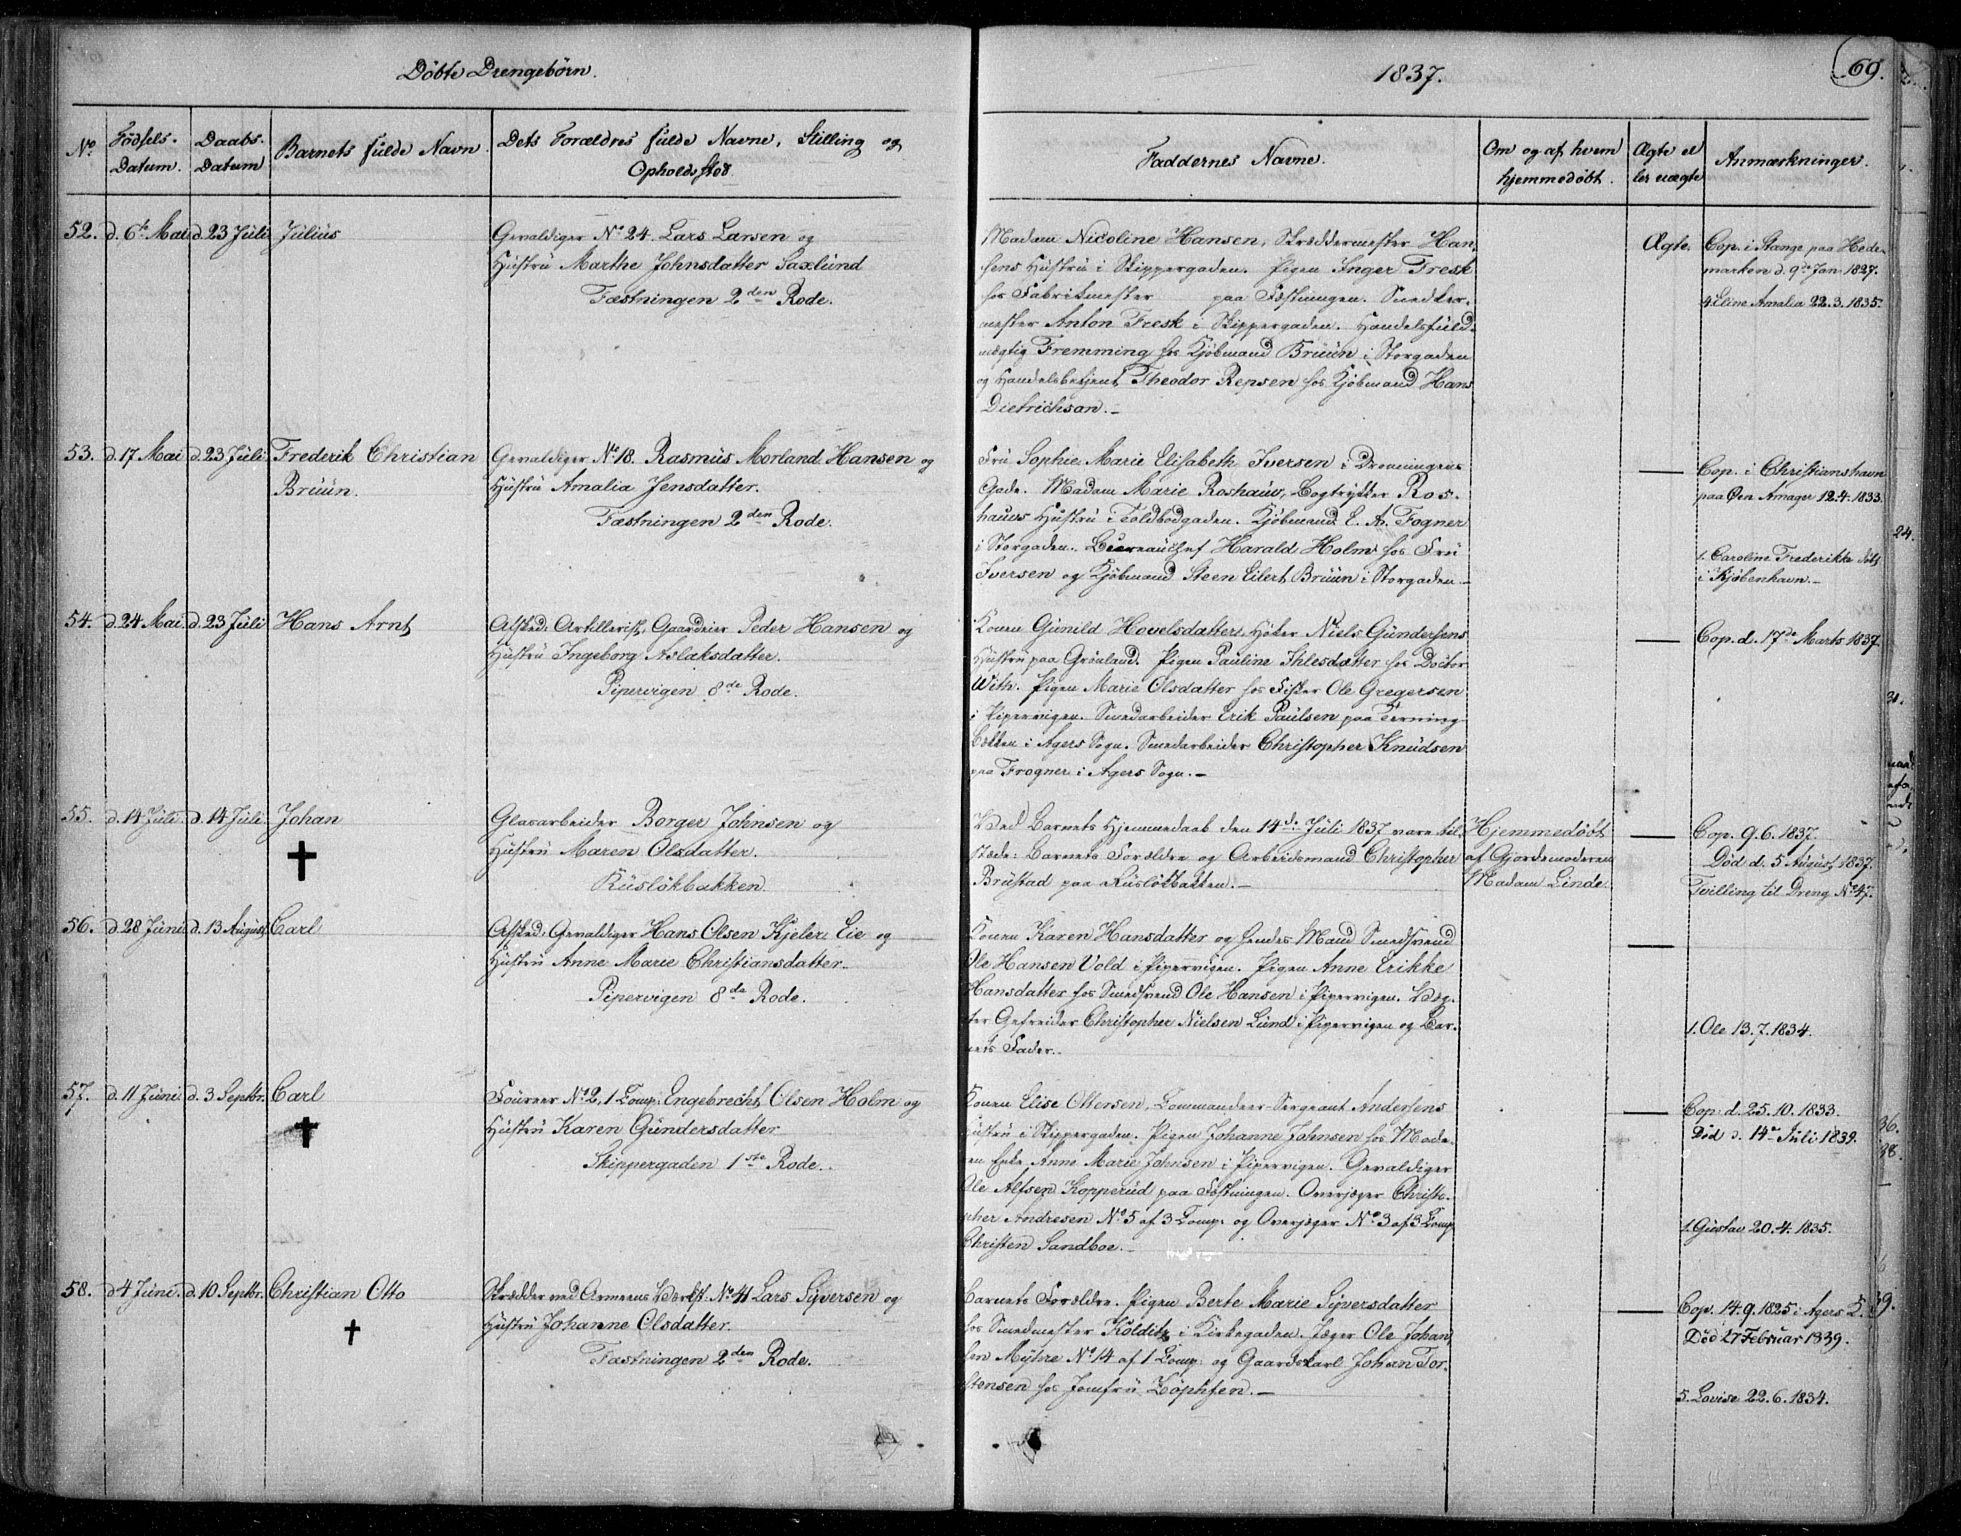 Døbte Drengebørn.
1837.
69.
No
Fødsels-
Datum.
Daabs-
Datum
Barnets fulde Navn.
Dets Forældres fulde Navne, Stilling og
Opholdssted.
Faddernes Navne.
Om og af hvem
hjemmedøbt.
Ægte el
ler uægte
Anmærkninger.
52. d. 6te Mai d. 23 Juli Julius
Gevaldiger No 24. Lars Larsen og
Hustru Marthe Johnsdatter Saxlund
Fæstningen 2den Rode.
Madam Nicoline Hansen, Skræddermester Han-
sens Hustru i Skippergaden. Pigen Inger Fresk
hos Fabrikmester paa Fæstningen. Snedker-
mester Anton Fresk i Skippergaden. Handelsfuld-
mægtig Fremming hos Kjøbmand Bruun i Storgaden
og Handelsbetjent Theodor Repsen hos Kjøbmand Hans
Dietrichsan.-
Ægte.
Cop. i Stange paa Hede-
marken d. 9de Jan. 1827.
4. Eline Amalia 22.3.1835.
53. d. 17 Mai d. 23 Juli Frederik Christian
Bruun.
Gevaldiger No 18. Rasmus Morland Hansen og
Hustru Amalia Jensdatter.
Fæstningen 2den Rode.
Fru Sophie Marie Elisabeth Iversen i Dronningens
Gade. Madam Marie Roshauw, Bogtrykker Ros-
hauws Hustru i Toldbodgaden. Kjøbmand E. A. Fogner
i Storgaden. Bureauchef Harald Holm hos Fru
Iversen og Kjøbmand Steen Eilert Bruun i Storgaden-
Cop. i Christianshavn
paa Øen Amager 12.4.1833.
1. Caroline Frederikke døbt
i Kjøbenhavn.-
54. d. 24 Mai d. 23 Juli Hans Arnt
Afsked: Artillerist, Gaardeier Peder Hansen og
Hustru Ingeborg Aslaksdatter.
Pipervigen 8de Rode.
Konen Gunild Hovelsdatter, Høker Niels Gundersens
Hustru paa Grønland. Pigen Pauline Ihlesdatter hos Doctor
With. Pigen Marie Olsdatter hos Fisker Ole Gregersen
i Pipervigen. Smedarbeider Erik Paulsen paa Terning-
bækken i Agers Sogn. Smedarbeider Christopher Knudsen
paa Frogner i Agers Sogn.-
Cop. d. 17de Marts 1837
55. d. 14 Juli d. 14 Juli Johan
Glasarbeider Borger Johnsen og
Hustru Maren Olsdatter.
Rusløkbakken
Ved Barnets Hjemmedaab den 14de Juli 1837 vare til-
stæde: Barnets Forældre og Arbeidsmand Christopher
Brustad paa Rusløkbakken.-
Hjemmedøbt
af Gjordemoderen
Madam Linde.
Cop. 9.6.1837.
Død d. 5 August 1837.
Tvilling til Dreng No 47.
56. d. 28 Juni d. 13 August Carl
Afsked: Gevaldiger Hans Olsen Kjeler: Eie og
Hustru Anne Marie Christiansdatter.
Pipervigen 8de Rode.
Konen Karen Hansdatter og hendes Mand Smedsvend
Ole Hansen Vold i Pipervigen. Pigen Anne Erikke
Hansdatter hos Smedsvend Ole Hansen i Pipervigen. Væg-
ter Gefreider Christopher Nielsen Lund i Pipervigen og Bar-
nets Fader.
1. Ole 13.7.1834.
57. d. 11 Juni d. 3 Septbr. Carl
Foureer No 2, 1 Comp: Engebrecht Olsen Holm og
Hustru Karen Gundersdatter
Skippergaden 1ste Rode.
Konen Elise Ottersen, Commandeer-Sergeant Andersens
Hustru i Skippergaden. Pigen Johanne Johnsen hos Mode-
ren Enke Anne Marie Johnsen i Pipervigen. Gevaldiger
Ole Alfsen Kopperud paa Fæstningen. Overjæger Christo-
pher Andresen No 5 af 3 Comp: og Overjæger No 3 af 3 Comp
Christen Sandboe.
Cop. d. 25.10.1833.
Død d. 14de Juli 1839.
1. Gustav 20.4.1835.
58. d. 4 Juni. d. 10 Septbr. Christian Otto
Skrædder ved Armeens Værkst: No 41 Lars Syversen og
Hustru Johanne Olsdatter.
Fæstningen 2den Rode.
Barnets Forældre. Pigen Berte Marie Syversdatter
hos Smedmester Kolditz i Kirkegaden. Jæger Ole Johan-
sen Myhre No 14 af 1 Comp: og Gaardskarl Johan Tor-
stensen hos Jomfru Zöphfen.-
Cop. 14.9.1825 i Agers S.
Død 27 Februar 1839.
5. Lovise 22.6.1834.
24.
31.
36.
38.
39.